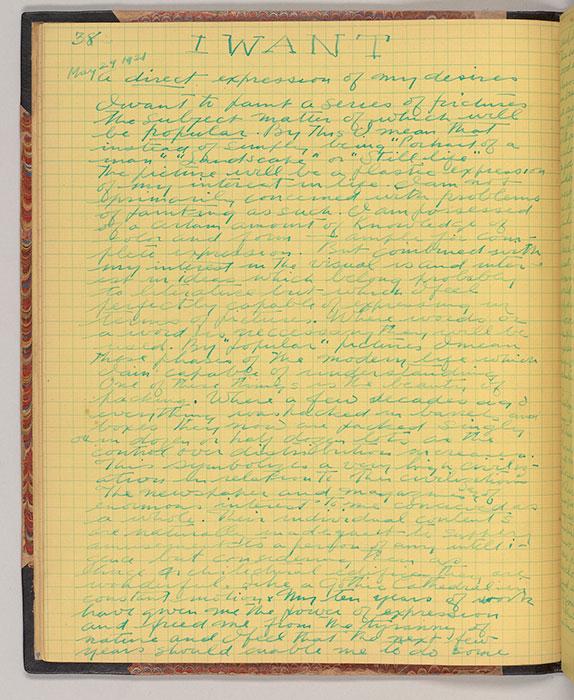 38
I WANT
May 29 1921
a direct expression of my desires
I want to paint a series of pictures
the subject matter of which will
be popular. By this I mean that
instead of simply being "Portrait of a
man" "Landscape" or "Still life"
the picture will be a plastic expression
of my interest in life. I am not
primarily concerned with problems
of painting as such. I am possessed
of a certain amount of knowledge of
color and form
plete expression. But combined with
my interest in the visual is and inter-
est in ideas which belong probably
to literature but which I feel
perfectly capable of expressing in
terms of pictures. Where words or
a word is neccessary they will be
used. By "popular" pictures I mean
those phases of the modern life which
I am capable of understanding.
One of these things is the beauty of
packing. Where a few decades ago
everything was packed in barrels and
boxes they now are packed singly
or in dozen or half dozen lots as the
control over distribution increases.
This symbolizes a very high civiliz-
ation in relation to other civilizations.
The newspaper and magazine are of
enormous interest to me conceived as
a whole. Their individual contents
are naturally inadequate to supply
amusement to a person of any intelli-
gence but considering them as
they are
wonderful. Like a Gothic Cathedral in
constant motion. My ten years of work
have given me the power of expression
and freed me from the tyranny of
nature and I feel that the next few
years should enable me to do some